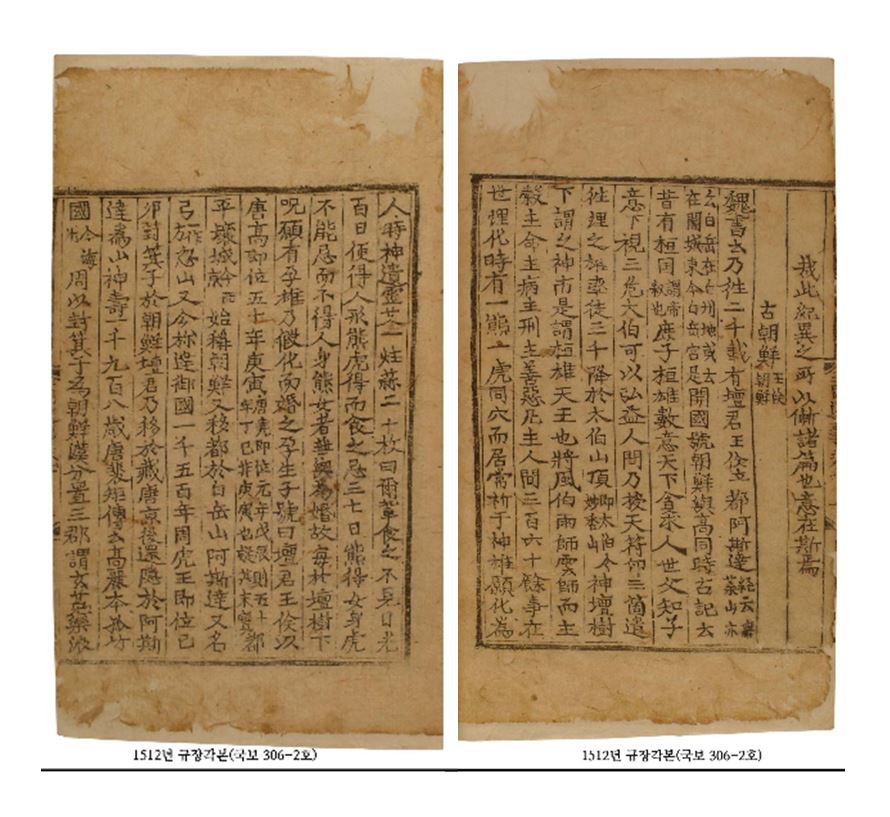 哉此紀異之所以慚諸篇也意在斯焉
古朝鮮 王儉朝鮮
魏書云乃徃二千載有壇君王儉立都阿斯達 經云無葉山亦
云白岳在白州地或云在開城東今白岳宮是 開國號朝鮮與高同時古記云
昔有桓囯 謂帝釋也 庶子桓雄數意天下貪求人世父知子
意下視三危太伯可以弘益人間乃授天符印三箇遣
徃理之雄率徒三千降於太伯山頂 即太伯今妙香山 神壇樹
下謂之神市是謂桓雄天王也將風伯雨師雲師而主
糓主命主病主刑主善惡凡主人間三百六十餘事在
世理化時有一熊一虎同穴而居常祈于神雄願化為
1512년 규장각본(국보 306-2호)
人時神遺靈艾一炷蒜二十枚曰爾輩食之不見日光
百日便得人形熊虎得而食之忌三七日熊得女身虎
不能忌而不得人身熊女者無與為婚故每於壇樹下
呪願有孕雄乃假化而婚之孕生子號曰壇君王儉以
唐高即位五十年庚寅 唐堯即位元年戊辰則五十年丁巳非庚寅也疑其未實 都
平壤城 今西京 始稱朝鮮又移都於白岳山阿斯達又名
弓 一作方 忽山又今旀達御國一千五百年周虎王即位己
卯封箕子於朝鮮壇君乃移於藏唐京後還隱於阿斯
達為山神壽一千九百八歲唐裴矩傳云高麗本孤竹
國 今海州 周以封箕子為朝鮮漢分置三郡謂玄菟樂浪
1512년 규장각본(국보 306-2호)